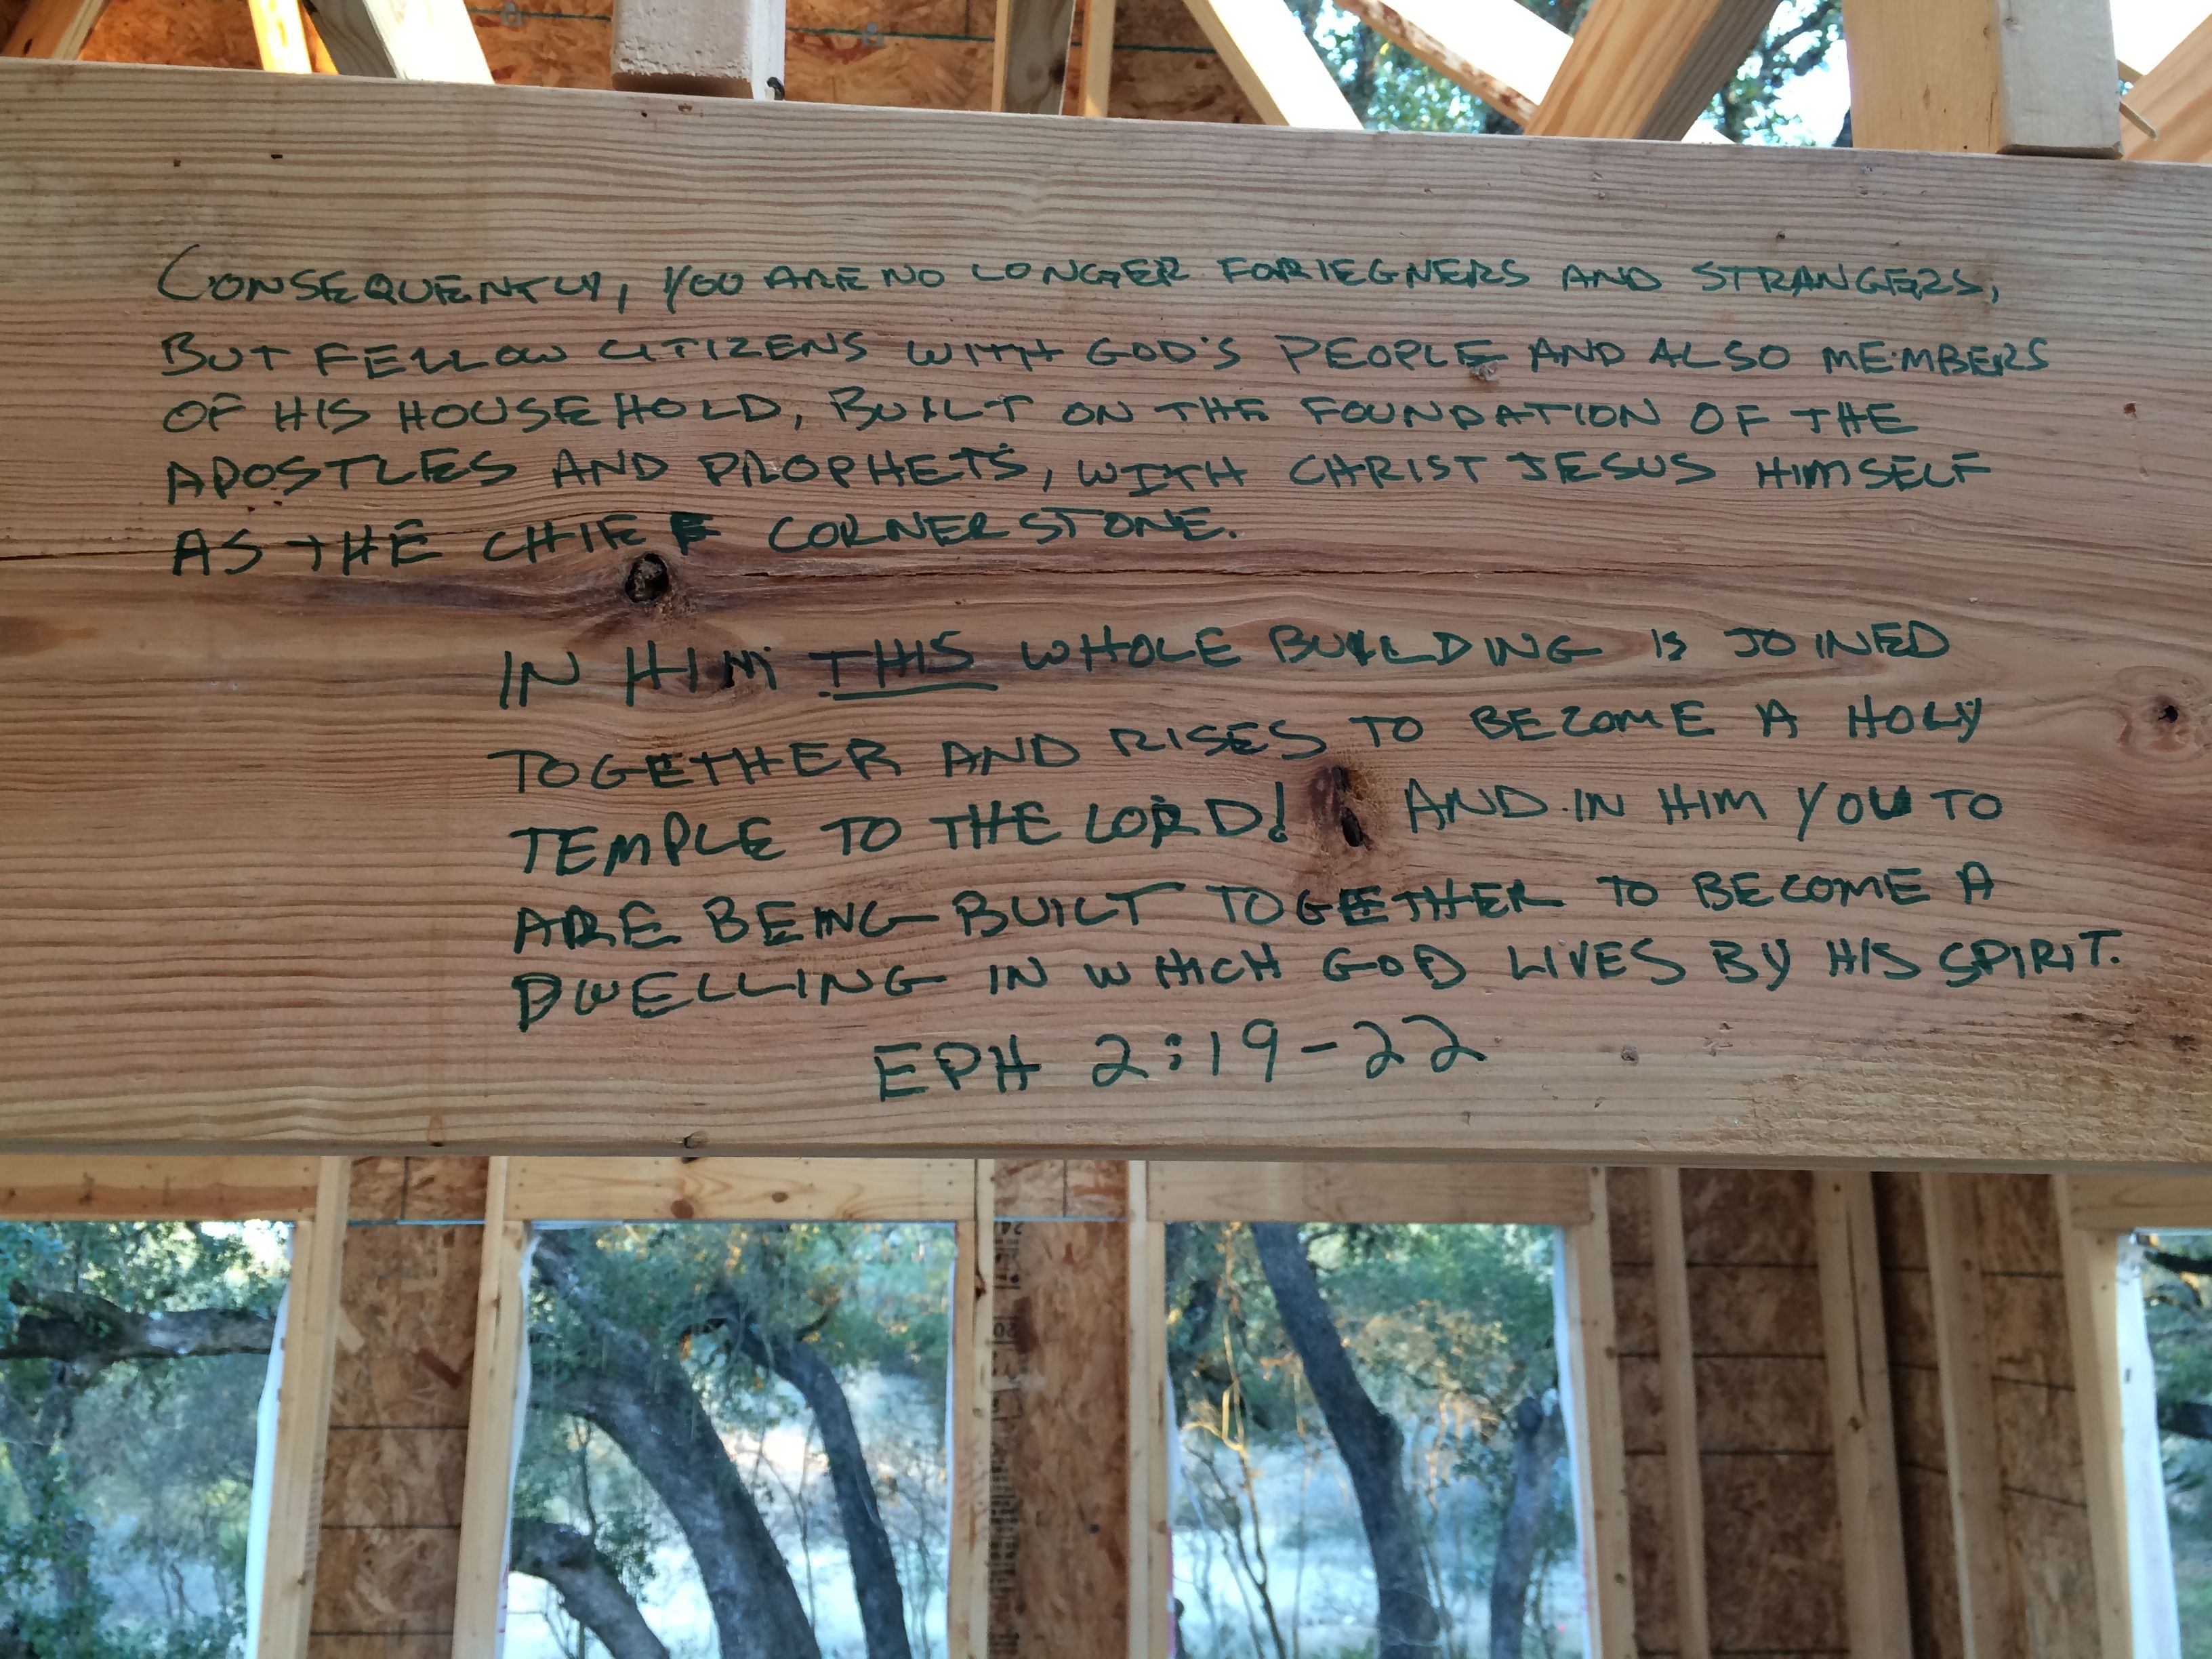 CONSEQUENTLY, YOU ARE NO LONGER FORIEGNERS AND STRANGERS,
BUT FELLOW CITIZENS WITH GOD'S PEOPLE AND ALSO MEMBERS
OF HIS HOUSEHOLD, BUILT ON THE FOUNDATION OF THE
APOSTLES AND PROPHETS, WITH CHRIST JESUS HIMSELF
AS THE CHIEF CORNERSTONE.
IN HIM THIS WHOLE BUILDING IS JOINED
TOGETHER AND RISES TO BECOME A HOLY
TEMPLE TO THE LORD! AND IN HIM YOU TO
ARE BEING BUILT TOGETHER TO BECOME A
DWELLING IN WHICH GOD LIVES BY HIS SPIRIT.
EPH 2:19-22